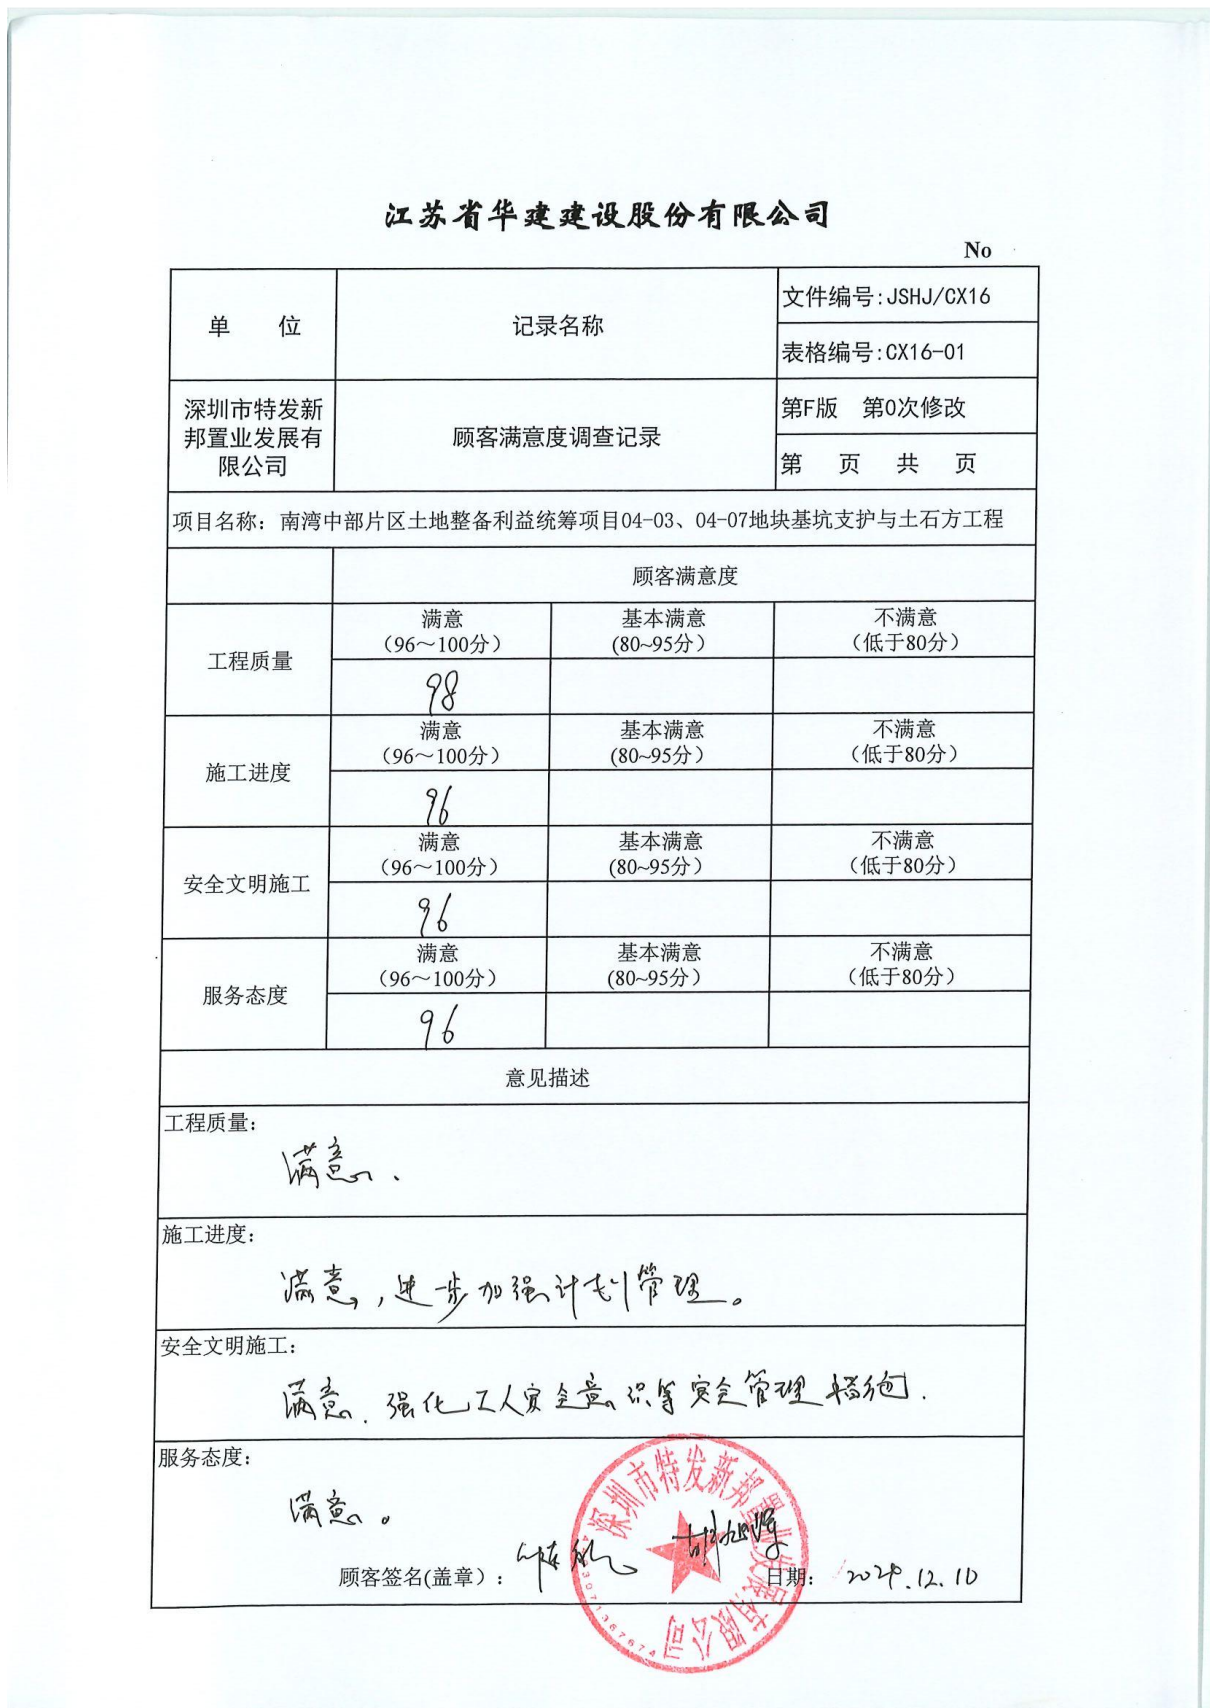 江苏省华建建设股份有限公司
No
单 位
记录名称
文件编号:JSHJ/CX16
表格编号:CX16-01
深圳市特发新
邦置业发展有
限公司
顾客满意度调查记录
第F版 第0次修改
第 页 共 页
项目名称：南湾中部片区土地整备利益统筹项目04-03、04-07地块基坑支护与土石方工程
顾客满意度
工程质量
满意
（96～100分）
基本满意
(80~95分)
不满意
（低于80分）
98
施工进度
满意
（96～100分）
基本满意
(80~95分)
不满意
（低于80分）
96
安全文明施工
满意
（96～100分）
基本满意
(80~95分)
不满意
（低于80分）
96
服务态度
满意
（96～100分）
基本满意
(80~95分)
不满意
（低于80分）
96
意见描述
工程质量：
满意.
施工进度：
满意,进一步加强计划管理。
安全文明施工：
满意.强化工人安全意识等安全管理措施.
服务态度：
满意。
深圳市特发新邦置业发展有限公司
顾客签名(盖章)：
日期： 2024.12.10